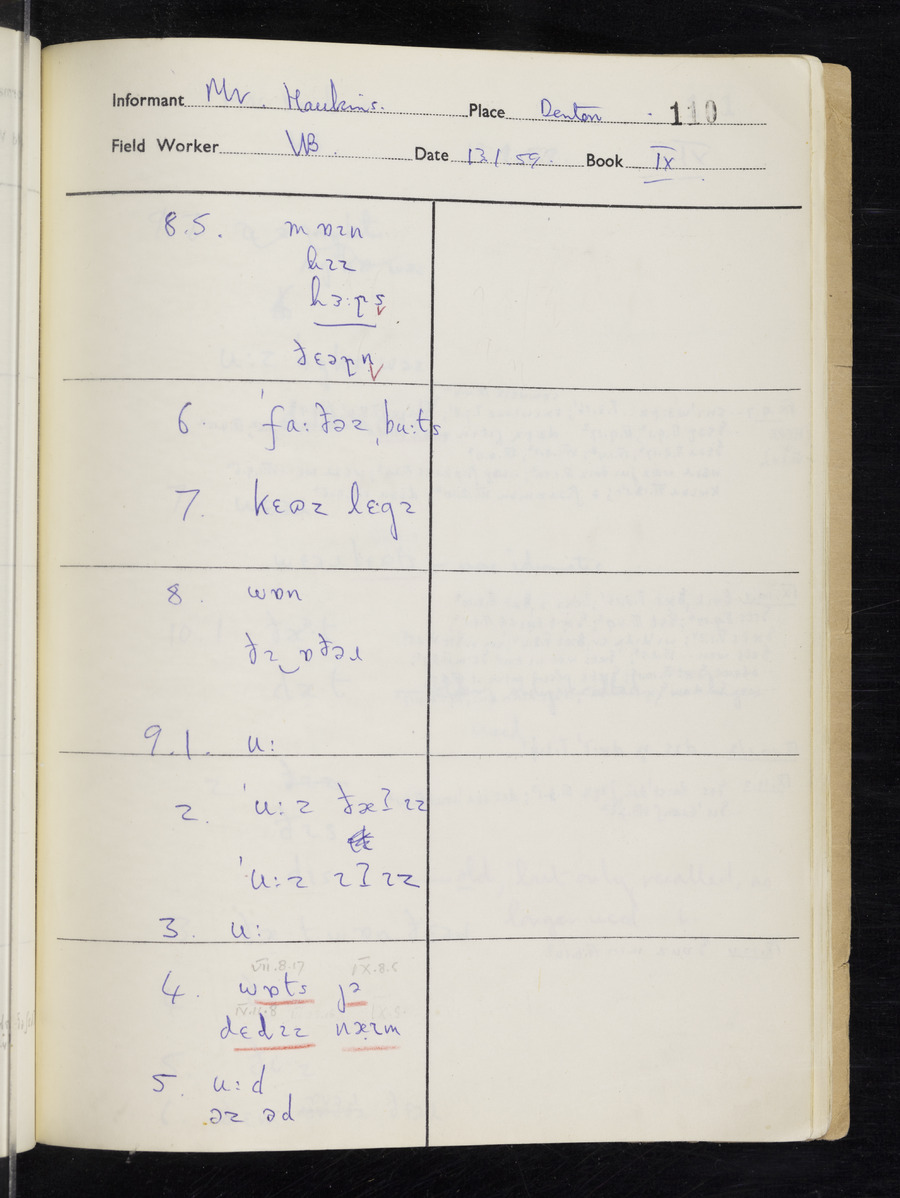 Informant Mr. Hawkins. Place Denton 110
Field Worker WB Date 13.1.59. Book IX
8.5. mɒɪn
hɪz
ðɛəɹn
6. ˈfɑːðəz ˌbuːts
7. kɛəz lɛgz
8. wɒn
ðɪ‿ɒðəɹ
9.1. uː
2. ˈuːz ðæʔ ɪz
ˈuːz ɪʔ ɪz
3. uː
VII.8.17 IX.8.5
4. wɒts jə
IV.11.8
dɛdɪz næɪm
5. uːd
əz əd